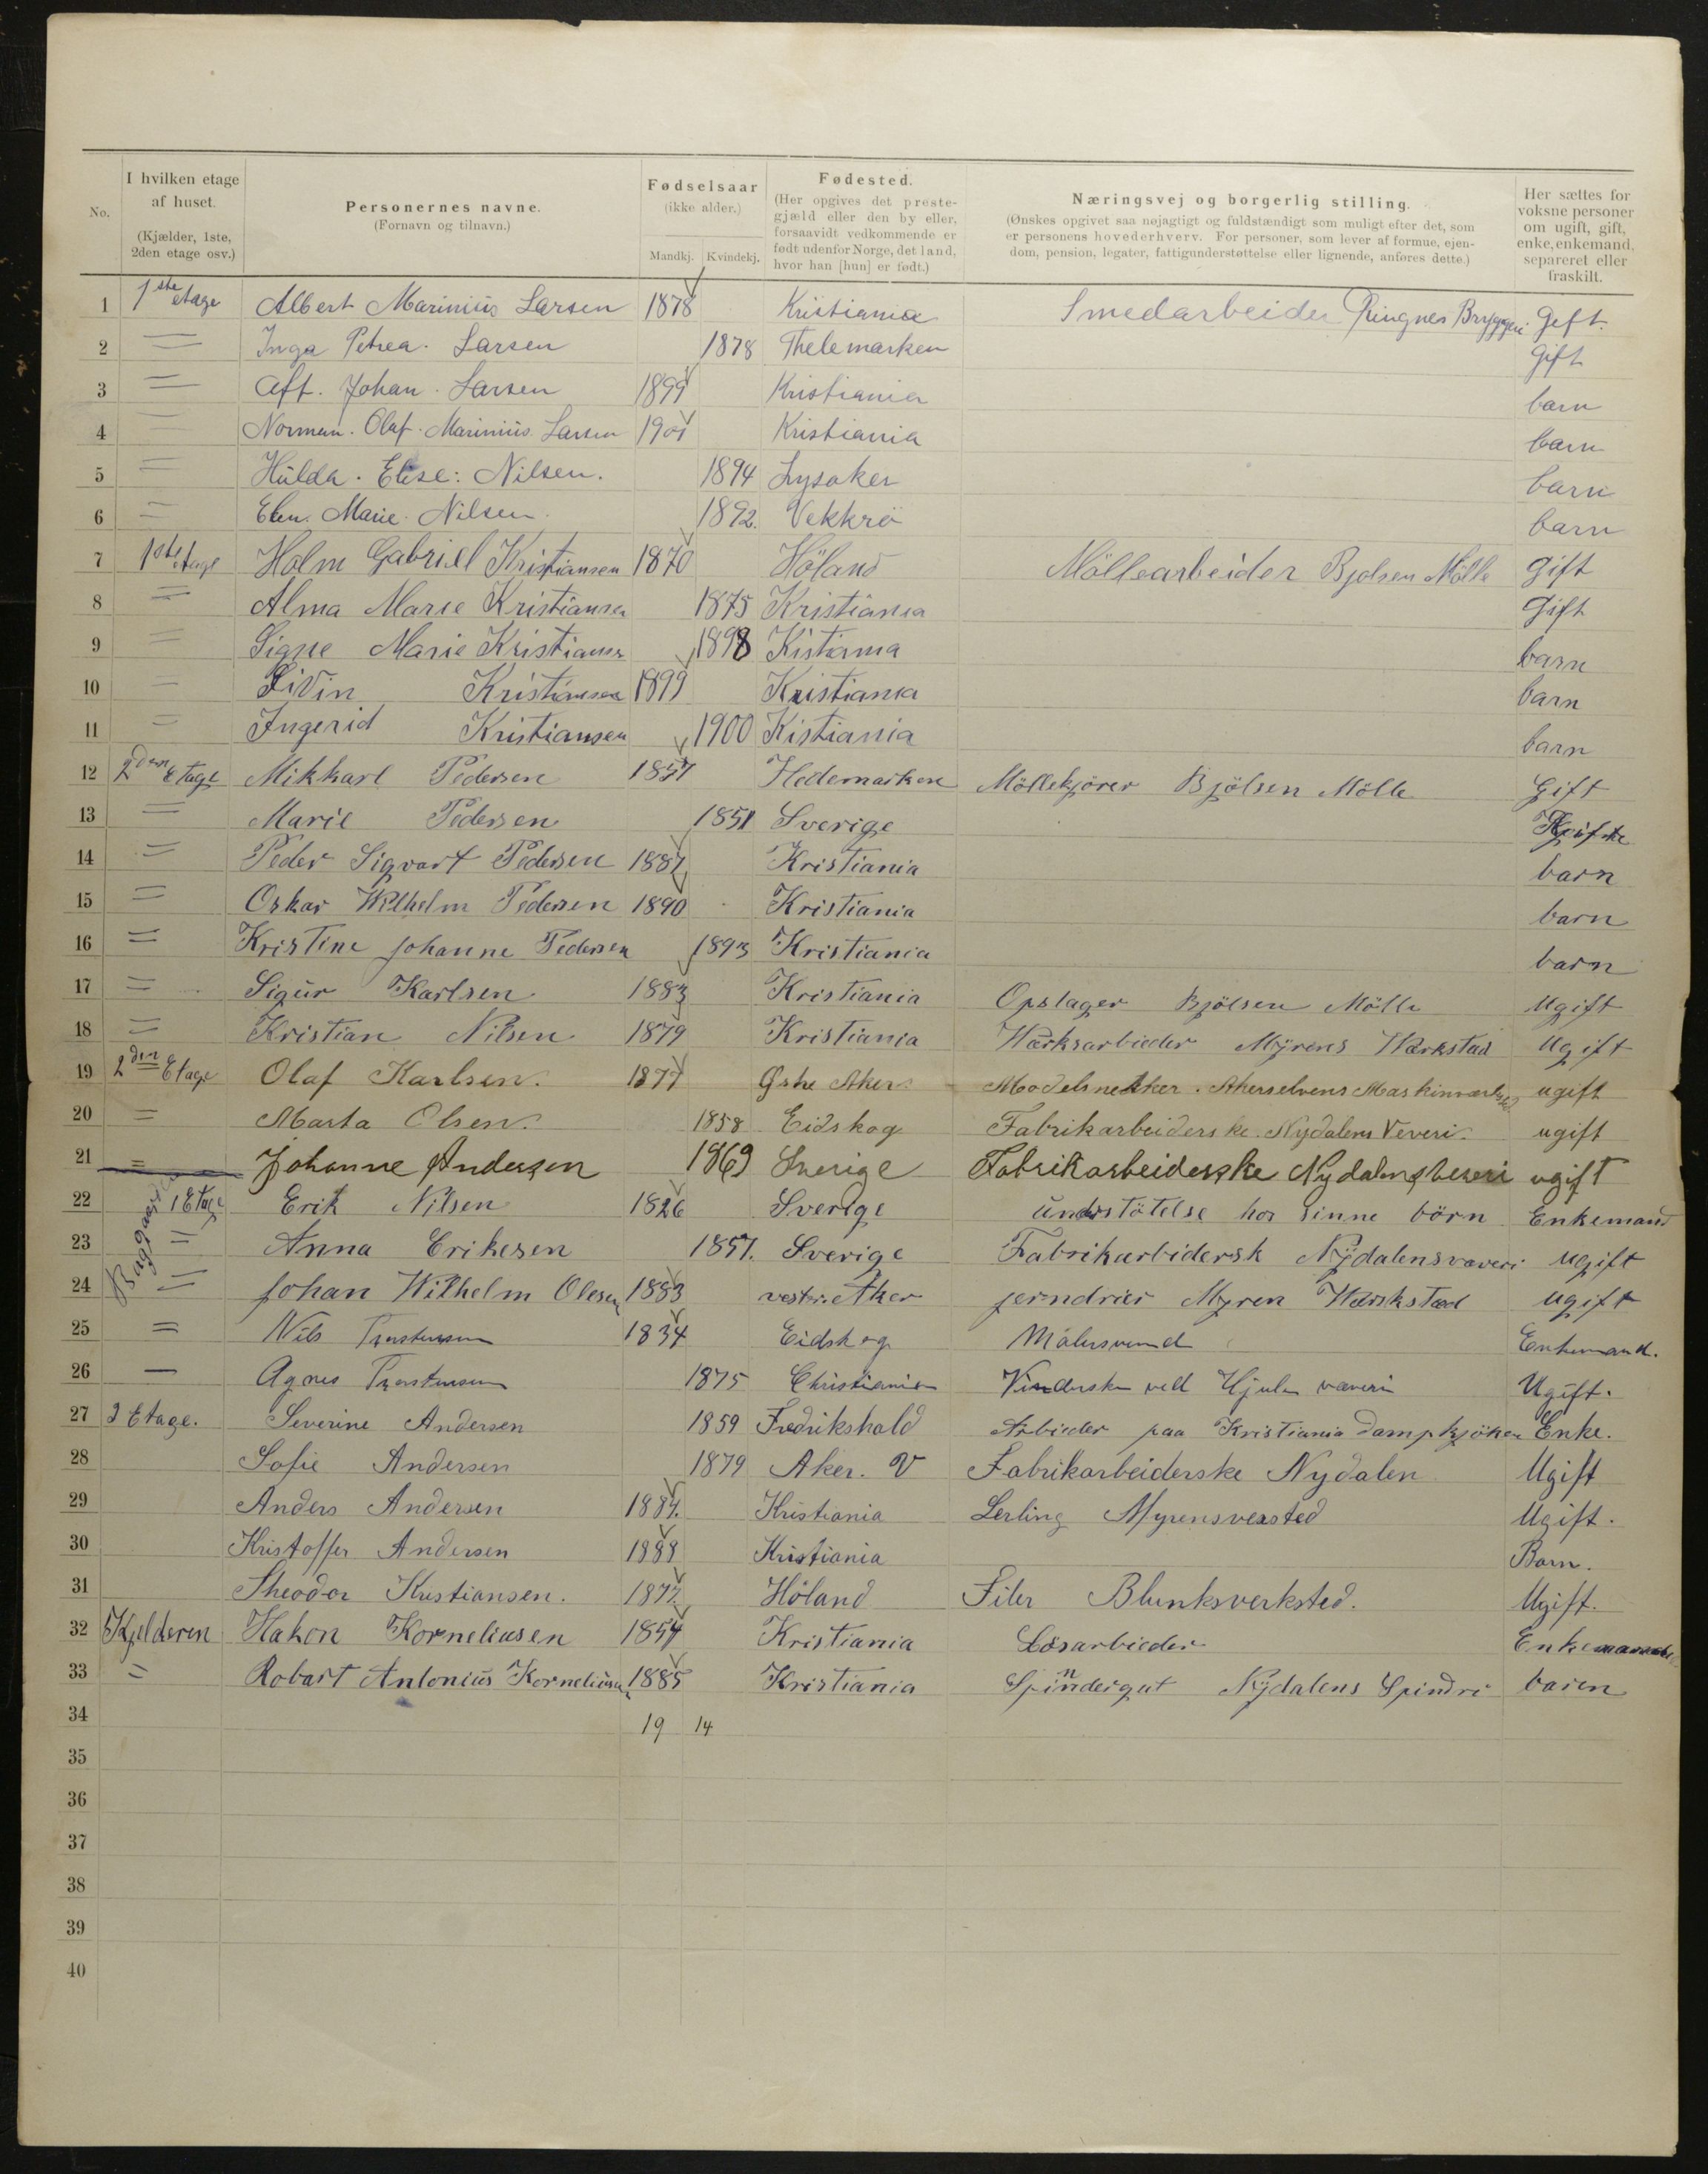 No.
I hvilken etage af huset. (Kjælder, 1ste, 2den etage osv.)
Personernes navne. (Fornavn og tilnavn.)
Fødselsaar (ikke alder.) Mandkj. Kvindekj.
Fødested. (Her opgives det prestegjæld eller den by eller, forsaavidt vedkommende er født udenfor Norge, det land, hvor han [hun] er født.)
Næringsvej og borgerlig stilling. (Ønskes opgivet saa nøjagtigt og fuldstændigt som muligt efter det, som er personens hovederhverv. For personer, som lever af formue, ejendom, pension, legater, fattigunderstøttelse eller lignende, anføres dette.)
Her sættes for voksne personer om ugift, gift, enke, enkemand, separeret eller fraskilt.
1 1ste etage Albert Marinius Larsen 1878 Kristiania Smedarbeider Ringnes Bryggeri Gift.
2 = Inga Petrea. Larsen 1878 Thelemarken Gift
3 = Alf. Johan. Larsen 1899 Kristiania barn
4 = Norman. Olaf. Marinius. Larsen 1901 Kristiania barn
5 = Hulda. Elise: Nilsen. 1894 Lysaker barn
6 = Elen. Marie. Nilsen. 1892. Vekkrö barn
7 1ste Etage Holm Gabriel Kristiansen 1870 Höland Möllearbeider Bjolsen Mölle gift
8 = Alma Marie Kristiansen 1875 Kristiania Gift
9 = Signe Marie Kristiansen 1898 Kistiania barn
10 = Livin Kristiansen 1899 Kristiania barn
11 = Ingerid Kristiansen 1900 Kistiania barn
12 2den Etage Mikharl Pedersen 1857 Hedemarken Möllekjörer Bjölsen Mölle Gift
13 = Marie Pedersen 1851 Sverige
14 = Peder Sigvart Pedersen 1887 Kristiania barn
15 = Oskar Wilhelm Pedersen 1890 Kristiania barn
16 = Kristine Johanne Pedersen 1893 Kristiania barn
17 = Sigur Karlsen 1883 Kristiania Opslager Bjölsen Mölle Ugift
18 = Kristian Nilsen 1879 Kristiania Værksarbieder Myrens Værkstad Ugift
19 2den Etage Olaf Karlsen. 1877 Østre Aker Modelsnekker. Akerselvens Maskinværksted ugift
20 = Marta Olsen. 1858 Eidskog Fabrikarbeiderske. Nydalens Veveri. ugift
21 = Johanne Andersen 1869 Sverige Fabrikarbeiderske Nydalensveveri ugift
22 Baggaarden 1 Etage Erik Nilsen 1826 Sverige understötelse hos sinne börn Enkemand
23 = Anna Eriksen 1857. Sverige Fabrikarbidersk Nydalensvaveri Ugift
24 = Johan Wilhelm Olesen 1883 vestre Aker jerndrier Myren Værskstad ugift
25 = Nils 1834 Eidskog Enkemand.
26 — Agnes 1875 Christiania Vinderske ved Hjula væveri Ugift.
27 2 Etage. Severine Andersen 1859 Fredrikshald Arbieder paa Kristiania Dampkjöken Enke.
28 Sofie Andersen 1879 Aker. V Fabrikarbeiderske Nydalen Ugift
29 Anders Andersen 1884. Kristiania Lerling Myrensversted Ugift.
30 Kristoffer Andersen 1888 Kristiania Barn.
31 Theodor Kristiansen. 1877. Höland Filer Blunksverksted. Ugift.
32 Kjelderen Hakon Korneliusen 1854 Kristiania Lösarbieder Enkemand
33 = Robart Antonius Korneliusen 1885 Kristiania Spindergut Nydalens Spindri baren
34 19 14
35
36
37
38
39
40